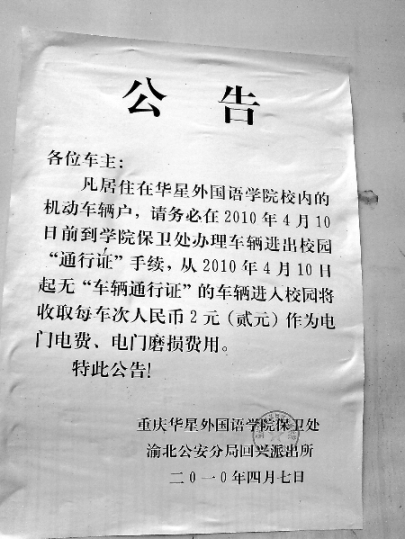 公告
各位车主：
凡居住在华星外国语学院校内的
机动车辆户，请务必在2010年4月10
日前到学院保卫处办理车辆进出校园
“通行证”手续，从2010年4月10日
起无“车辆通行证”的车辆进入校园将
收取每车次人民币2元（贰元）作为电
门电费、电门磨损费用。
特此公告!
重庆华星外国语学院保卫处
渝北公安分局回兴派出所
二0一0年四月七日